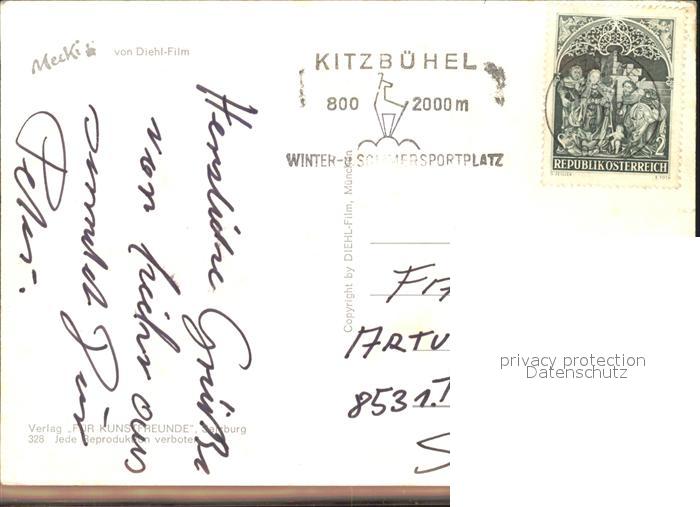 Mecki von Diehl-Film
KITZBÜHEL
800 2000 m
WINTER- U. SOMMERSPORTPLATZ
2
REPUBLIK ÖSTERREICH
Herzliche Grüße
von hier aus
Dein
Peter.
Copyright by DIEHL-Film, München
ARTU
8531.
privacy protection
Datenschutz
Verlag „FÜR KUNSTFREUNDE", Salzburg
328 Jede Reproduktion verboten